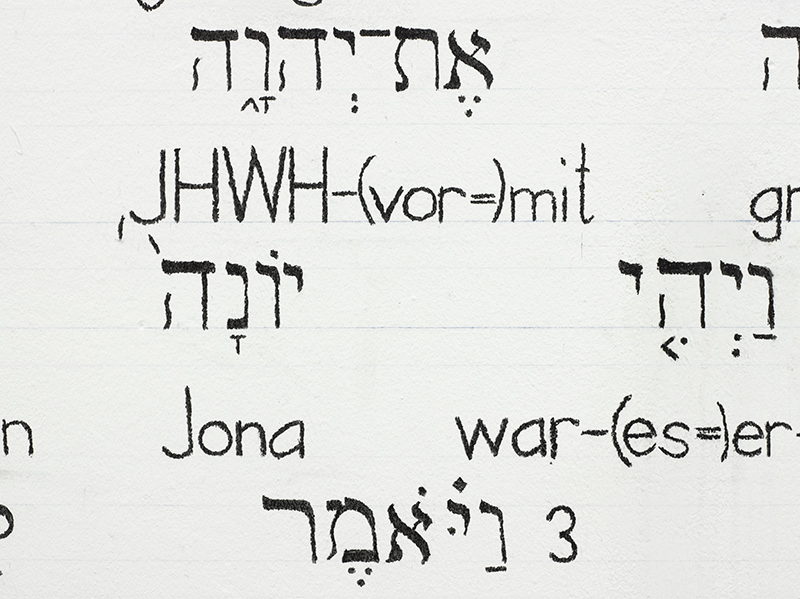 אֶת־יְהוָ֑ה
JHWH-(vor=)mit
וַיְהִ֤י יוֹנָה֙
Jona war-(es=)er-
3 וַיֹּ֗אמֶר